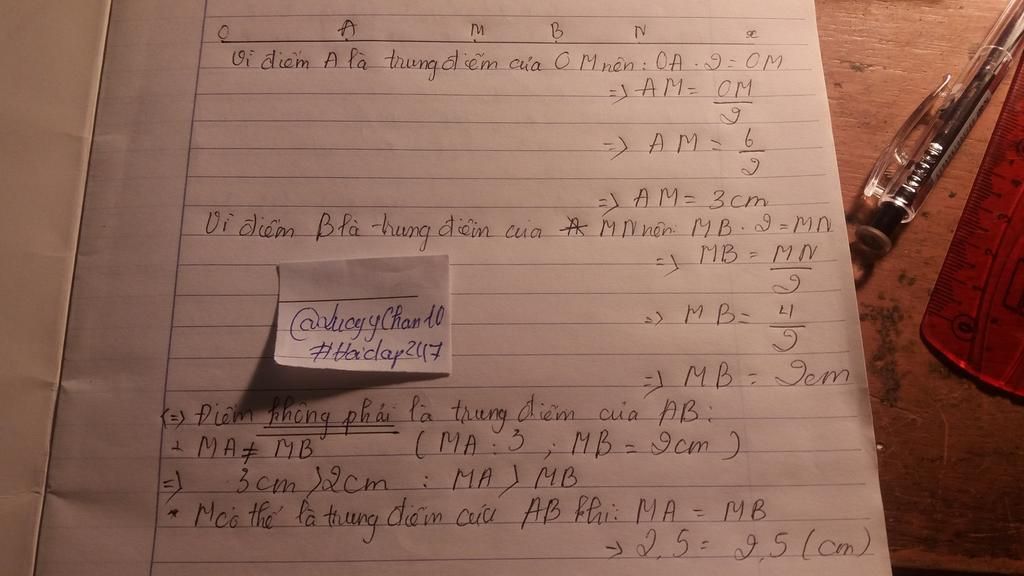 O A M B N x
Vì điểm A là trung điểm của OM nên: OA . 2 = OM
=> AM = OM/2
=> AM = 6/2
=> AM = 3cm
Vì điểm B là trung điểm của MN nên: MB . 2 = MN
=> MB = MN/2
=> MB = 4/2
=> MB = 2cm
#Hoidap247
(=) Điểm không phải là trung điểm của AB:
- MA ≠ MB (MA : 3 ; MB = 2cm)
=> 3cm > 2cm : MA > MB
* M có thể là trung điểm của AB khi: MA = MB
=> 2,5 = 2,5 (cm)